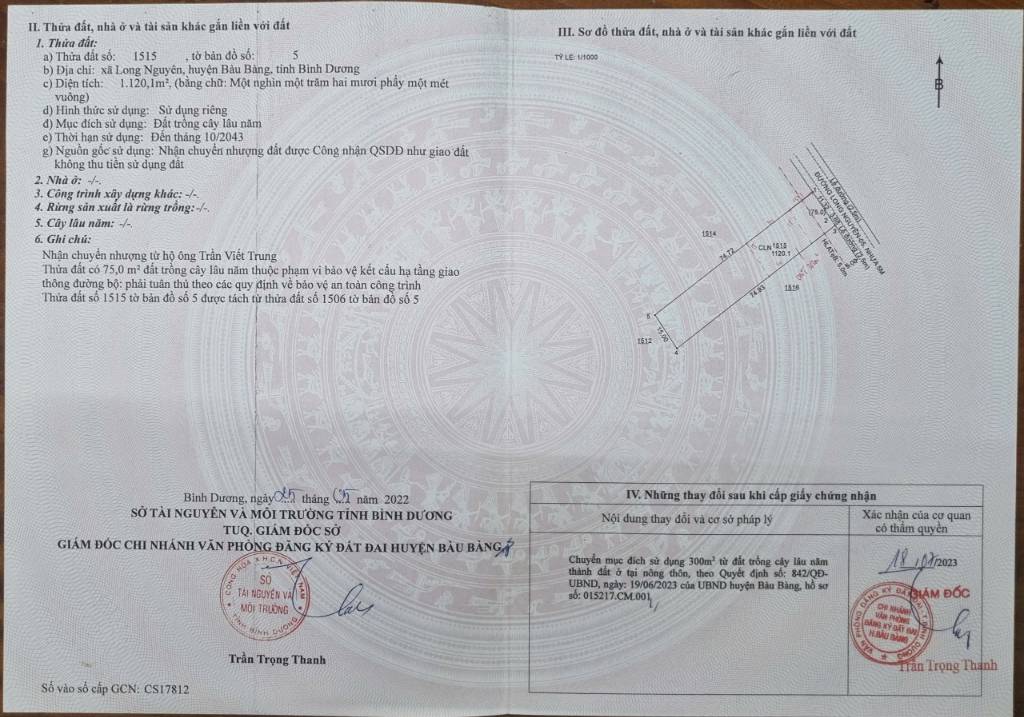 II. Thửa đất, nhà ở và tài sản khác gắn liền với đất
1. Thửa đất:
a) Thửa đất số: 1515 , tờ bản đồ số: 5
b) Địa chỉ: xã Long Nguyên, huyện Bàu Bàng, tỉnh Bình Dương
c) Diện tích: 1.120,1m², (bằng chữ: Một nghìn một trăm hai mươi phẩy một mét
vuông)
d) Hình thức sử dụng: Sử dụng riêng
đ) Mục đích sử dụng: Đất trồng cây lâu năm
e) Thời hạn sử dụng: Đến tháng 10/2043
g) Nguồn gốc sử dụng: Nhận chuyển nhượng đất được Công nhận QSDĐ như giao đất
không thu tiền sử dụng đất
2. Nhà ở: -/-.
3. Công trình xây dựng khác: -/-.
4. Rừng sản xuất là rừng trồng:-/-.
5. Cây lâu năm: -/-.
6. Ghi chú:
Nhận chuyển nhượng từ hộ ông Trần Viết Trung
Thửa đất có 75,0 m² đất trồng cây lâu năm thuộc phạm vi bảo vệ kết cấu hạ tầng giao
thông đường bộ: phải tuân thủ theo các quy định về bảo vệ an toàn công trình
Thửa đất số 1515 tờ bản đồ số 5 được tách từ thửa đất số 1506 tờ bản đồ số 5
Bình Dương, ngày 25 tháng 05 năm 2022
SỞ TÀI NGUYÊN VÀ MÔI TRƯỜNG TỈNH BÌNH DƯƠNG
TUQ. GIÁM ĐỐC SỞ
GIÁM ĐỐC CHI NHÁNH VĂN PHÒNG ĐĂNG KÝ ĐẤT ĐAI HUYỆN BÀU BÀNG
CỘNG HÒA X.H.C.N VIỆT NAM
SỞ
TÀI NGUYÊN VÀ
MÔI TRƯỜNG
TỈNH BÌNH DƯƠNG
Trần Trọng Thanh
Số vào sổ cấp GCN: CS17812
III. Sơ đồ thửa đất, nhà ở và tài sản khác gắn liền với đất
TỶ LỆ: 1/1000
B
Lề đường (2.5m)
ĐƯỜNG LONG NGUYÊN-65, NHỰA 5M
Lề đường (2.5m)
HLATĐB: 5.0m
(75.0)
1514
74.72
CLN 1515
1120.1
74.93
1516
1512
15.00
4
IV. Những thay đổi sau khi cấp giấy chứng nhận
Nội dung thay đổi và cơ sở pháp lý
Xác nhận của cơ quan
có thẩm quyền
Chuyển mục đích sử dụng 300m² từ đất trồng cây lâu năm
thành đất ở tại nông thôn, theo Quyết định số: 842/QĐ-
UBND, ngày: 19/06/2023 của UBND huyện Bàu Bàng, hồ sơ
số: 015217.CM.001
18/07/2023
GIÁM ĐỐC
CHI NHÁNH
VĂN PHÒNG
ĐĂNG KÝ ĐẤT ĐAI
H.BÀU BÀNG
Trần Trọng Thanh